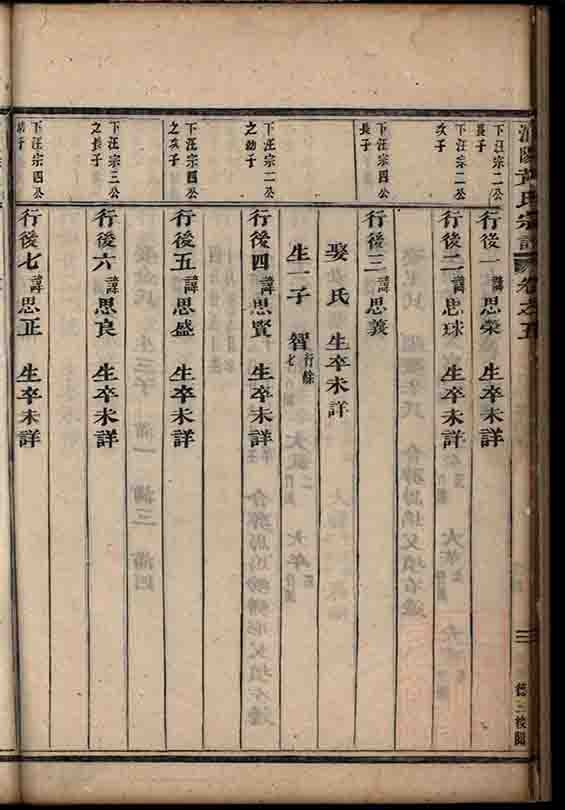 黃氏宗譜 卷之五
三
下汪宗二公
長子
行後一 諱 思榮 生卒未詳
下汪宗二公
次子
行後二 諱 思球 生卒未詳
下汪宗四公
長子
行後三 諱 思義
娶 氏 生卒未詳
生一子 智 行餘七
下汪宗二公
之幼子
行後四 諱 思賢 生卒未詳
下汪宗四公
之次子
行後五 諱 思盛 生卒未詳
下汪宗三公
之長子
行後六 諱 思良 生卒未詳
下汪宗四公
幼子
行後七 諱 思正 生卒未詳